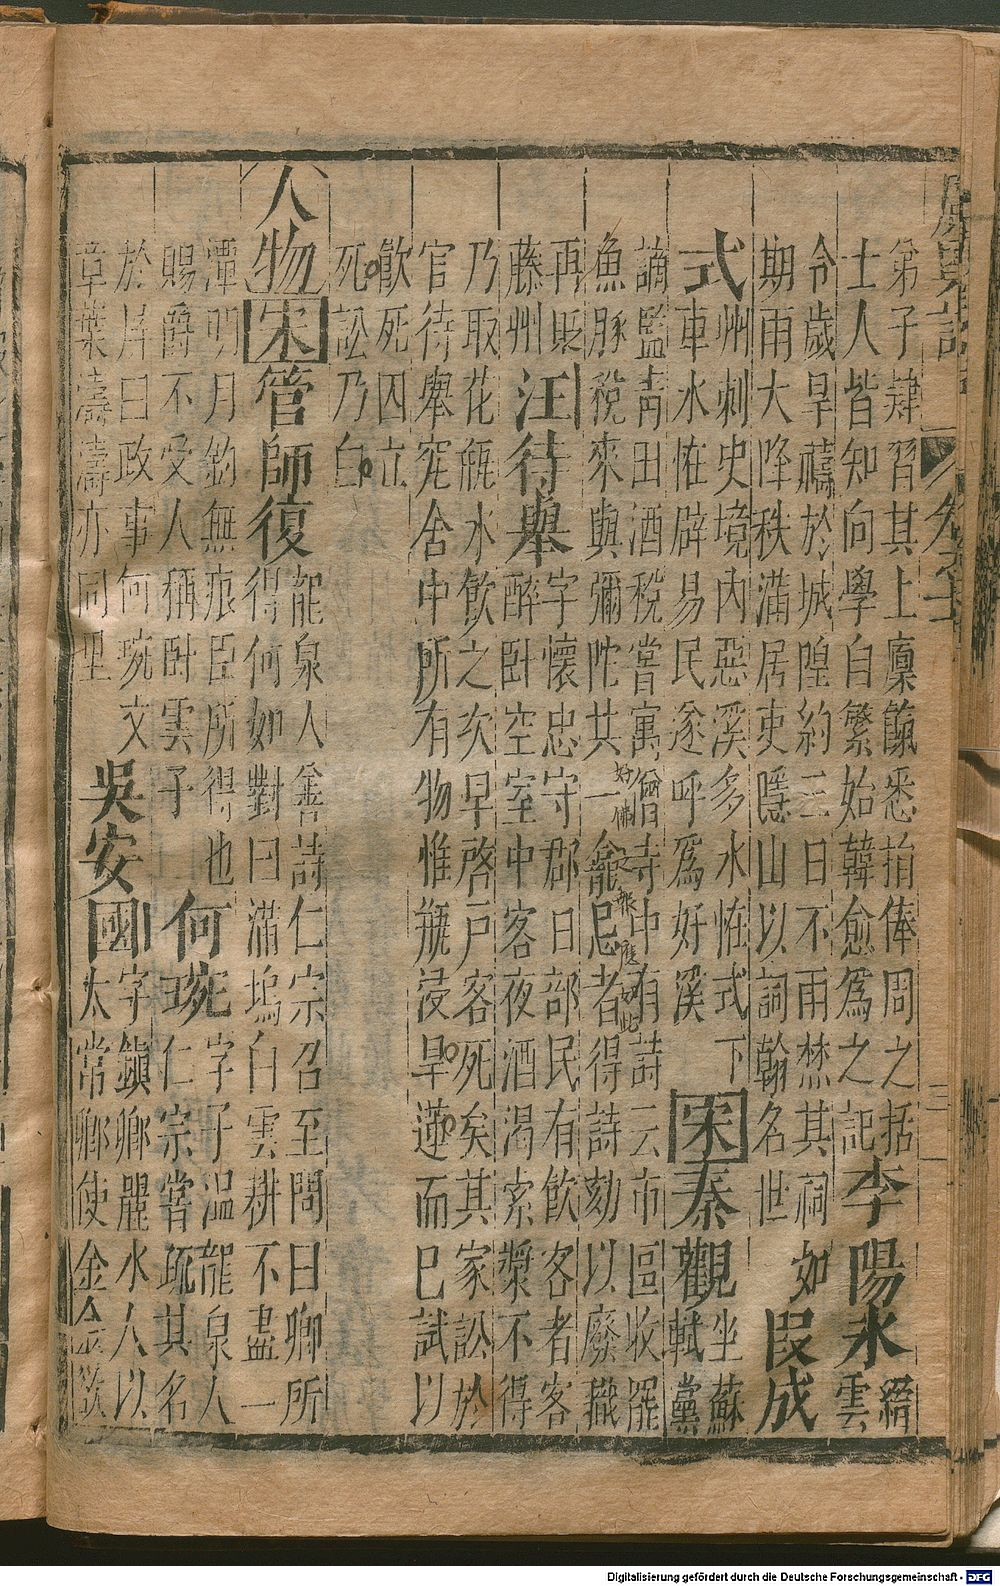 廣輿記 卷十一 三
第子肄習其上廩餼悉捐俸周之括
士人皆知向學自繁始韓愈爲之記
李陽冰 縉
雲
令歲旱禱於城隍約三日不雨焚其祠如
期雨大降秩滿居吏隱山以詞翰名世
段成
式 州刺史境內惡溪多水怪式下
車水怪辟易民遂呼爲好溪
宋 秦觀 坐蘇
軾黨
謫監青田酒稅嘗寓僧寺中有詩云市區收罷
魚豚稅來與彌陀共一龕忌者得詩劾以廢職
好佛之報應如此
再貶
藤州
汪待舉 字懷忠守郡日部民有飲客者客
醉臥空室中客夜酒渴索漿不得
乃取花瓶水飲之次早啓戶客死矣其家訟於
官待舉究舍中所有物惟瓶浸旱蓮而已試以
飲死囚立
死訟乃白
人物 宋 管師復 龍泉人善詩仁宗召至問曰卿所
得何如對曰滿塢白雲耕不盡一
潭明月釣無痕臣所得也
賜爵不受人稱臥雲子
何琬 字子溫龍泉人
仁宗嘗疏其名
於屏曰政事何琬文
章葉濤濤亦同里
吳安國 字鎮卿麗水人以
太常卿使金金欲
Digitalisierung gefördert durch die Deutsche Forschungsgemeinschaft - DFG